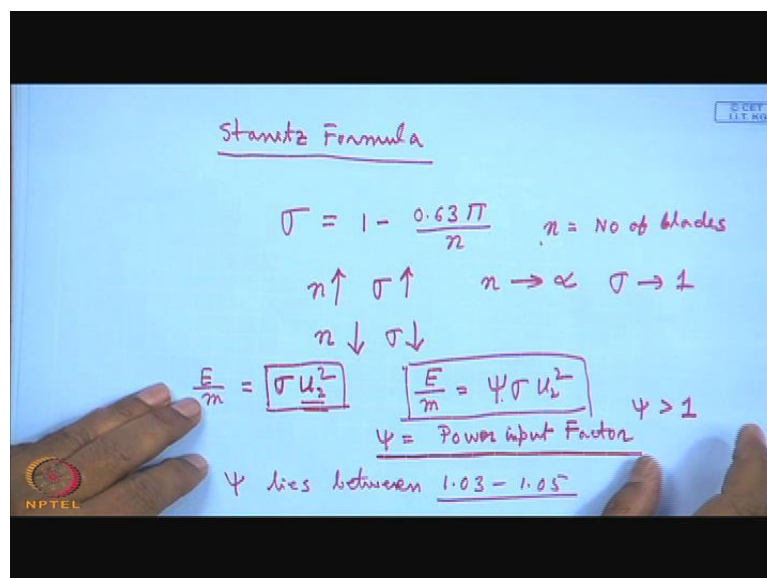 © CET
I.I.T. KG
Stanitz Formula
σ = 1 - 0.63 π / n n = No of blades
n↑ σ↑ n → ∝ σ → 1
n ↓ σ↓
E/m = σ u₂² E/m = ψ σ u₂² ψ > 1
ψ = Power input Factor
ψ lies between 1.03 - 1.05
NPTEL